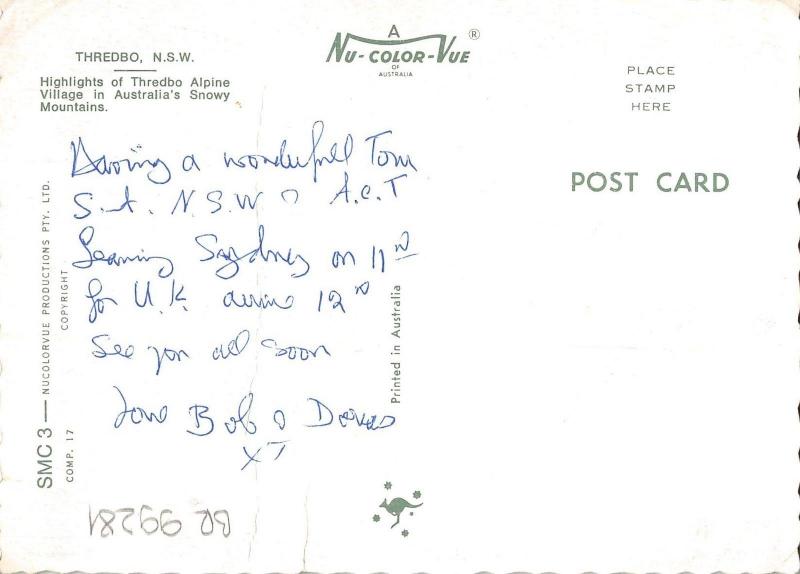 THREDBO, N.S.W.
Highlights of Thredbo Alpine
Village in Australia's Snowy
Mountains.
A
NU-COLOR-VUE ®
OF
AUSTRALIA
PLACE
STAMP
HERE
POST CARD
Having a wonderfull Tour
S.A. N.S.W & A.C.T
Leaving Sydney on 11
for U.K. 12
See you all soon
Love Bob &
SMC 3 — NUCOLORVUE PRODUCTIONS PTY. LTD.
COMP. 17
COPYRIGHT
Printed in Australia
BR 99281